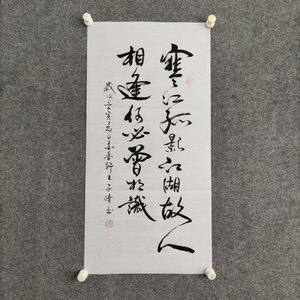 寒江孤影江湖故人
相逢何必曾相識
歲次壬寅